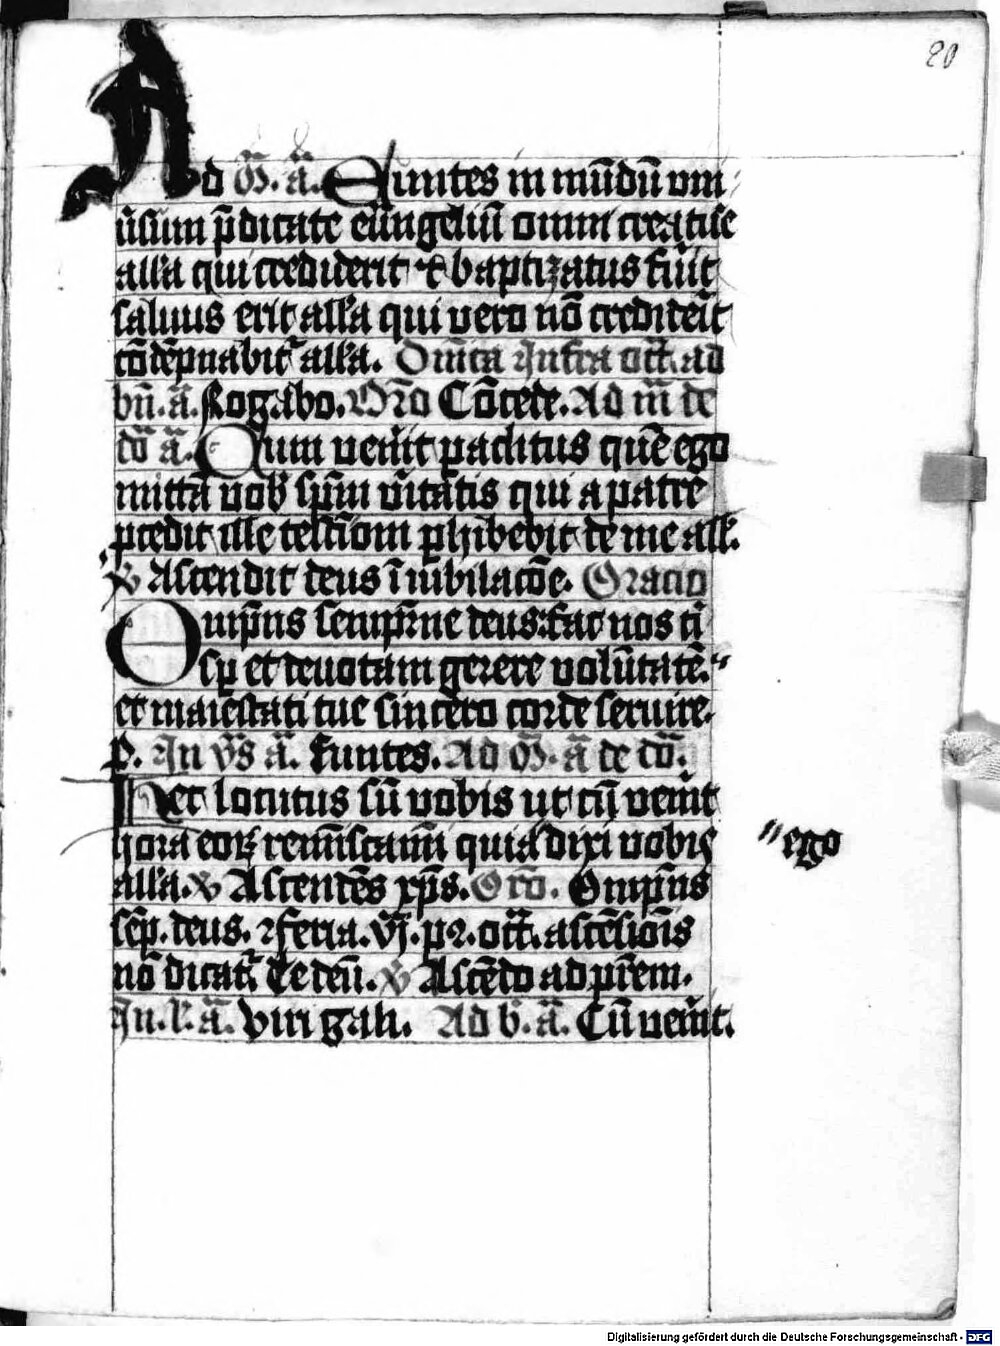 20
Ad M̄. ā. Euntes in mūdū vni
ūsum p̄dicate eūngeliū omni creatᵉ
alla qui crediderit et baptizatus fūit
saluus erit alla qui vero nō crediderīt
cōdēpnabit᷑ alla. Om̄ia Infra oct̄. ad
bn̄. ā. Rogabo. Or̄o Cōcede. Ad m̄ de
dō ā. Cum venīt paclitus quē ego
mittā vob̄ sp̄m vītatis qui a patre
ꝓcedit ille testīom ꝑhibebit de me all̄.
℣ Ascendit deus ī iubilacōe. Oracio
Omp̄ns sempr̄ne deus: fac nos ti
sꝑ et deuotam gerere volūtatē. "
et maiestati tue sincero corde seruire.
P. In v̄s ā. Euntes. Ad M̄. ā de dō.
Hec locutus sū vobis ut cū venīt
hora eoꝝ remīscamī quia dixi vobis
" ego
alla. ℣ Ascendēs xp̄s. Or̄o. Omp̄ns
sēp. deus. ⁊ feria. vj. p⁹. oct̄. ascēsiōis
nō dicat᷑ Te deū. ℣ Ascēdo ad pr̄em.
In. l. ā. Viri gali. Ad b̄. ā. Cū venīt.
Digitalisierung gefördert durch die Deutsche Forschungsgemeinschaft - DFG